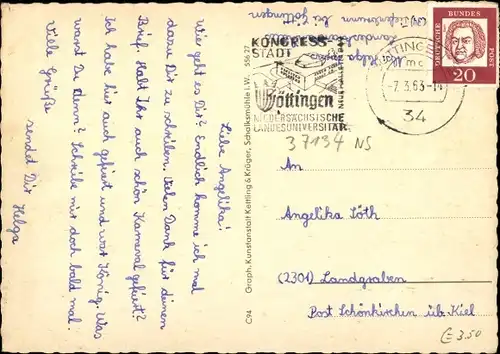 Liebe Angelika!
Wie geht es Dir? Endlich komme ich mal
dazu Dir zu schreiben. Vielen Dank für deinen
Brief. Habt Ihr auch schön Karneval gefeiert?
Ich habe hier auch gefeiert und war König. Was
warst Du denn? Schreibe mir doch bald mal.
Viele Grüße
sendet Dir Helga
C94 Graph. Kunstanstalt Kettling & Krüger, Schalksmühle i. W. 556 27
KONGRESS-
STADT
Göttingen
NIEDERSÄCHSISCHE
LANDESUNIVERSITÄT
-7.3.63-
mc
34
DEUTSCHE BUNDES POST
20
37134 NS
An
Angelika Töth
(2301) Landgraben
Post Schönkirchen üb. Kiel
€ 3.50